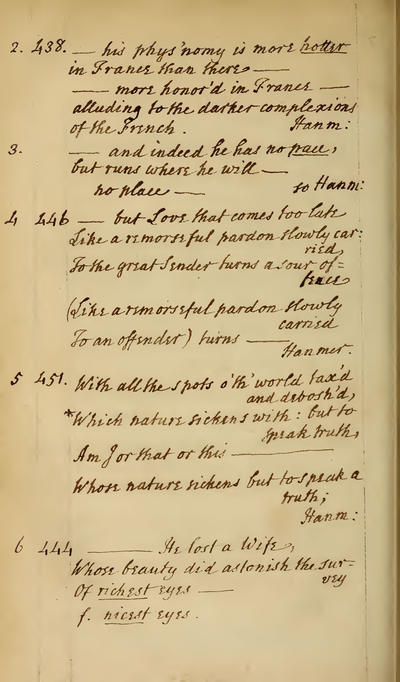 2. 438. — his phys'nomy is more hotter
in France than there —
— more honor'd in France —
alluding to the darker complexions
of the French. Hanm:
3. — and indeed he has no pace,
but runs where he will —
no place — so Hanm:
4 446 — but Love that comes too late
Like a remorseful pardon slowly car:
ried,
To the great Sender turns a sour of=
fence
(Like a remorseful pardon slowly
carried
To an offender) turns —
Hanmer.
5 451. With all the spots o'th' world tax'd
and debosh'd,
*Which nature sickens with: but to
speak truth,
Am I or that or this —
Whose nature sickens but to speak a
truth;
Hanm:
6 444 — He lost a Wife,
Whose beauty did astonish the sur=
vey
Of richest eyes —
f. nicest eyes.